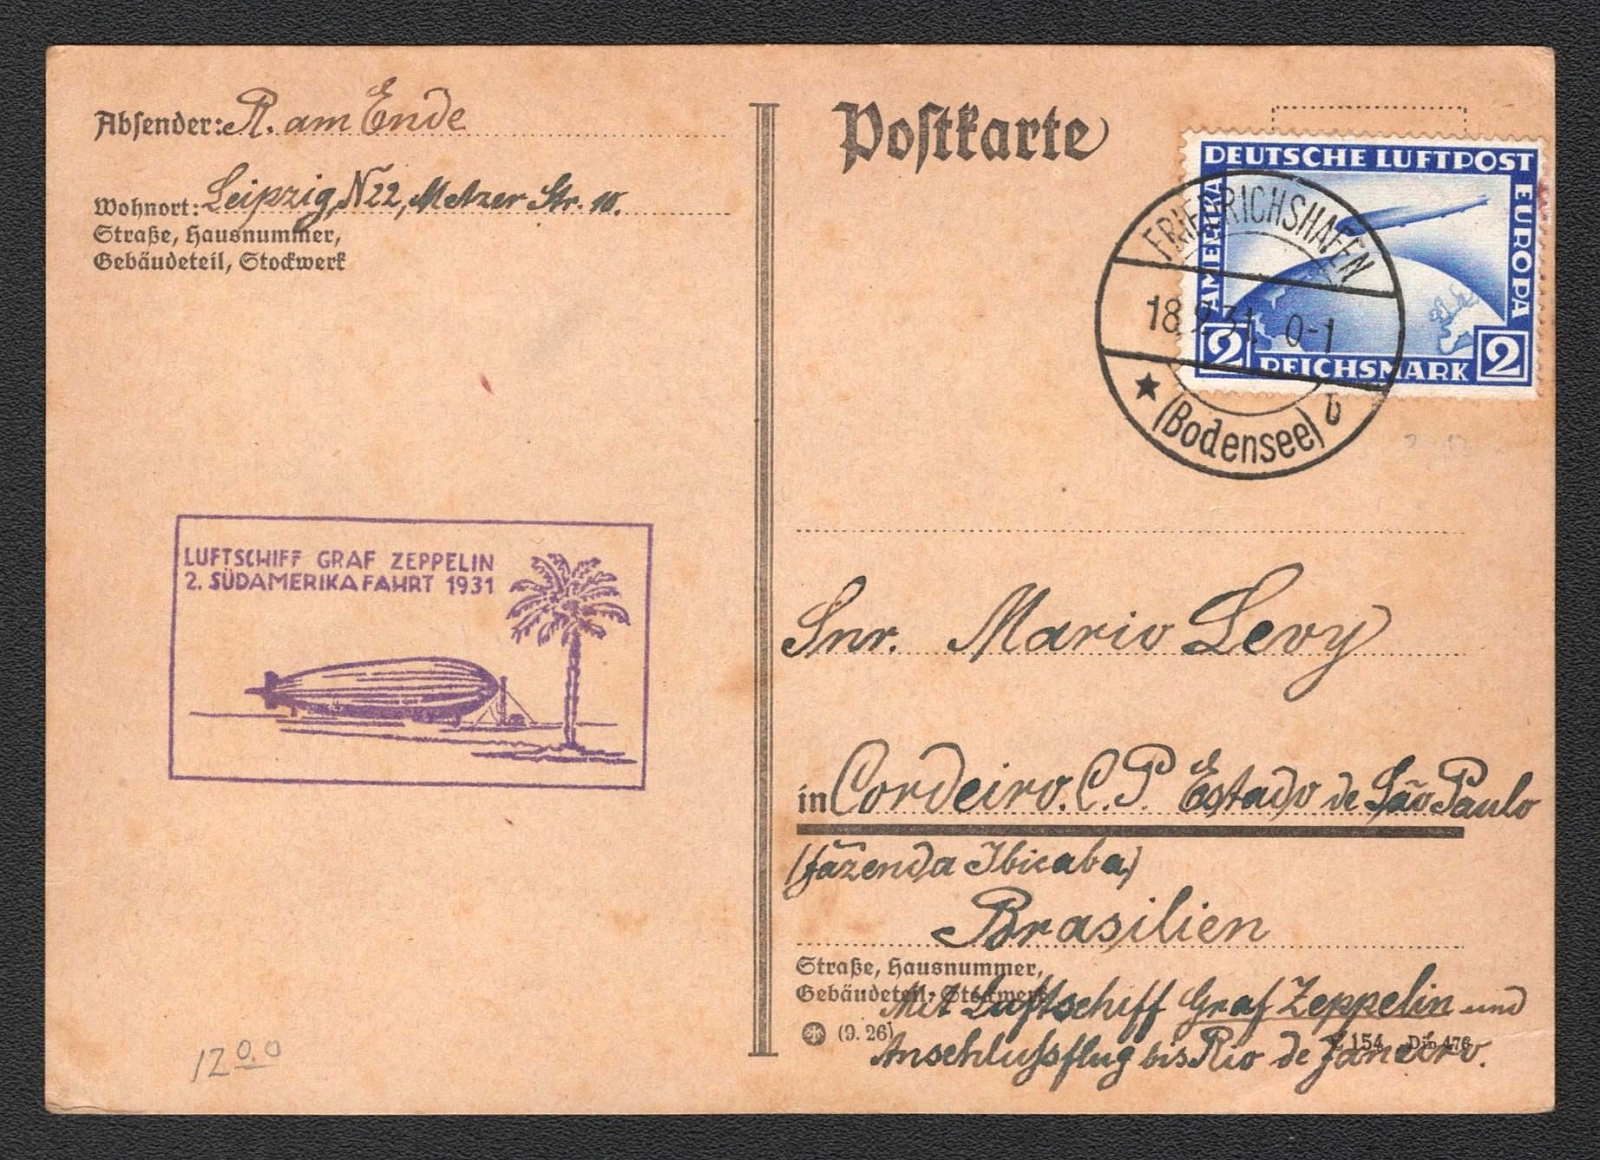 Absender: R. am Ende
Wohnort: Leipzig N22, Metzer Str. 10.
Straße, Hausnummer,
Gebäudeteil, Stockwerk
LUFTSCHIFF GRAF ZEPPELIN
2. SÜDAMERIKAFAHRT 1931
1200
Postkarte
DEUTSCHE LUFTPOST
AMERIKA
EUROPA
2 REICHSMARK 2
FRIEDRICHSHAFEN
18.9.31. 0-1
(Bodensee) b
Snr. Mario Levy
in Cordeiro. C. P. Estado de São Paulo
(fazenda Ibicaba)
Brasilien
Straße, Hausnummer,
Gebäudeteil, Stockwerk
Mit Luftschiff Graf Zeppelin und
(9. 26) 154 Din 476
Anschlußflug bis Rio de Janeiro.